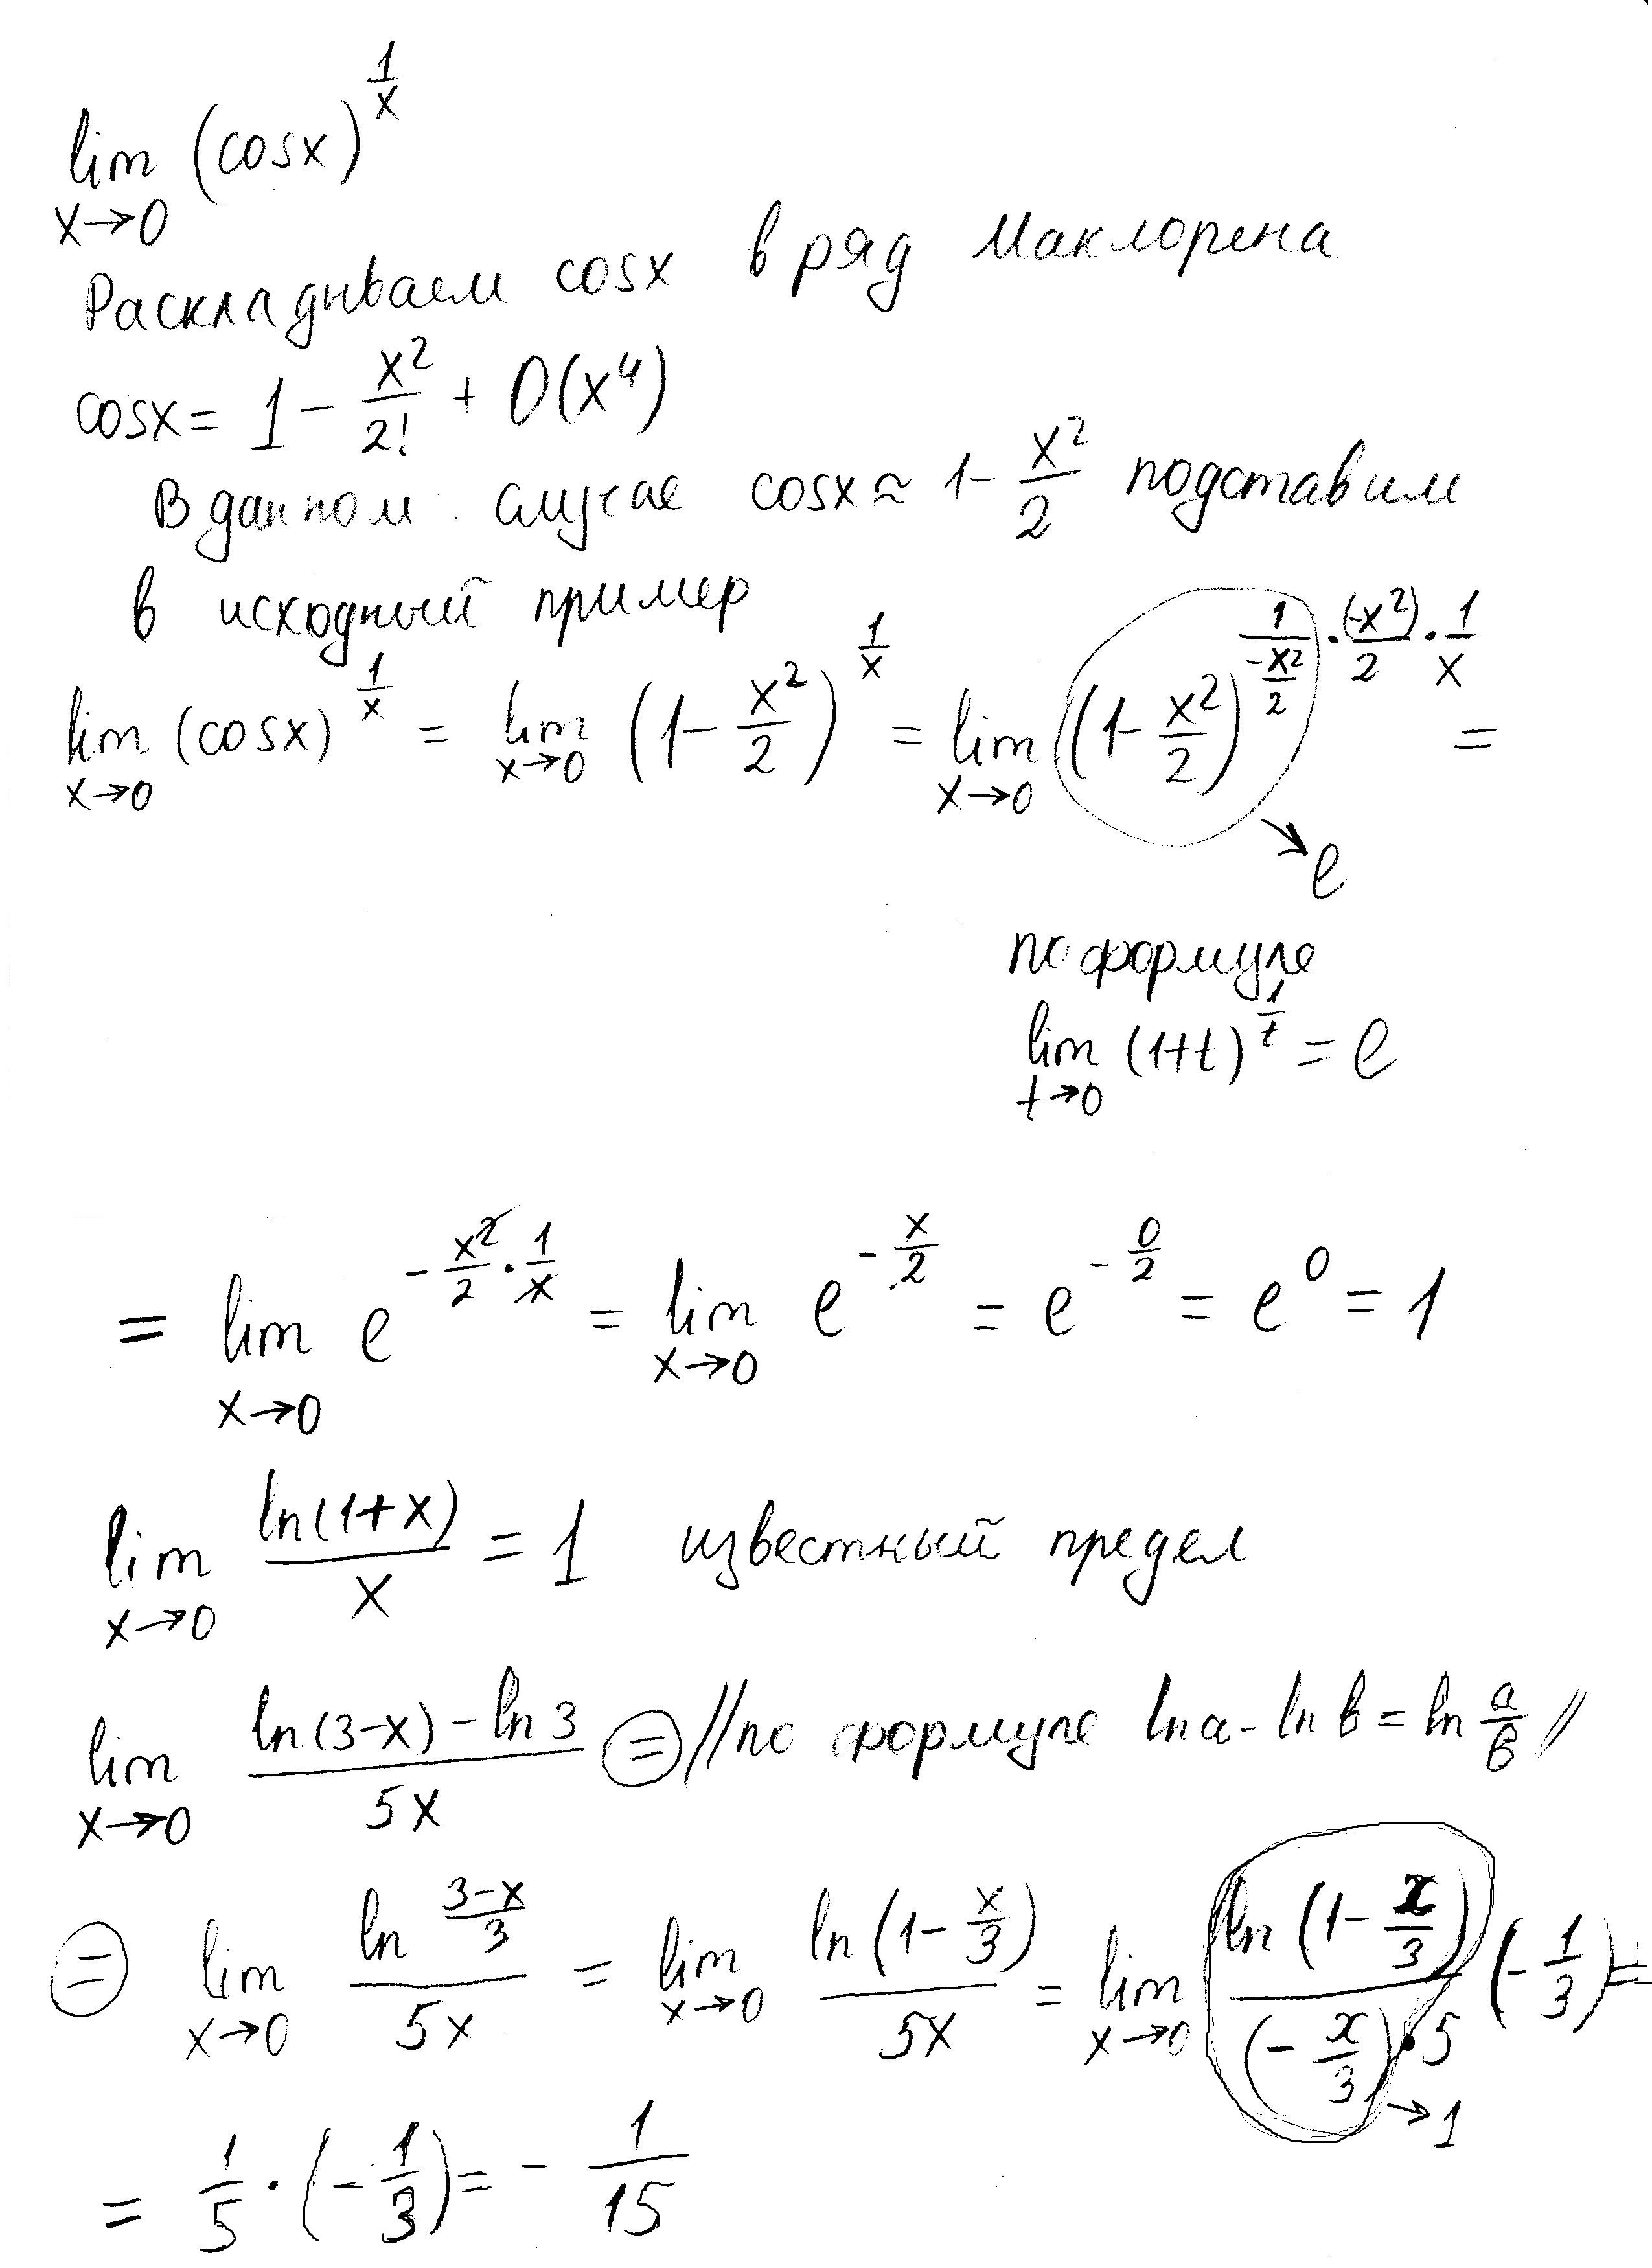 lim (cosx)^(1/x)
x→0
Раскладываем cosx в ряд Маклорена
cosx = 1 - x²/2! + O(x⁴)
В данном случае cosx ≈ 1 - x²/2 подставим
в исходный пример
lim (cosx)^(1/x) = lim (1 - x²/2)^(1/x) = lim (1 - x²/2)^(1/(-x²/2) · (-x²)/2 · 1/x) =
x→0 x→0 x→0
→ e
по формуле
lim (1+t)^(1/t) = e
t→0
= lim e^(-x²/2 · 1/x) = lim e^(-x/2) = e^(-0/2) = e⁰ = 1
x→0 x→0
lim ln(1+x)/x = 1 известный предел
x→0
lim (ln(3-x) - ln3)/5x = // по формуле lna - lnb = ln a/b //
x→0
= lim (ln (3-x)/3)/5x = lim ln(1 - x/3)/5x = lim ln(1 - x/3)/((-x/3)·5) (-1/3) =
x→0 x→0 x→0 →1
= 1/5 · (-1/3) = - 1/15